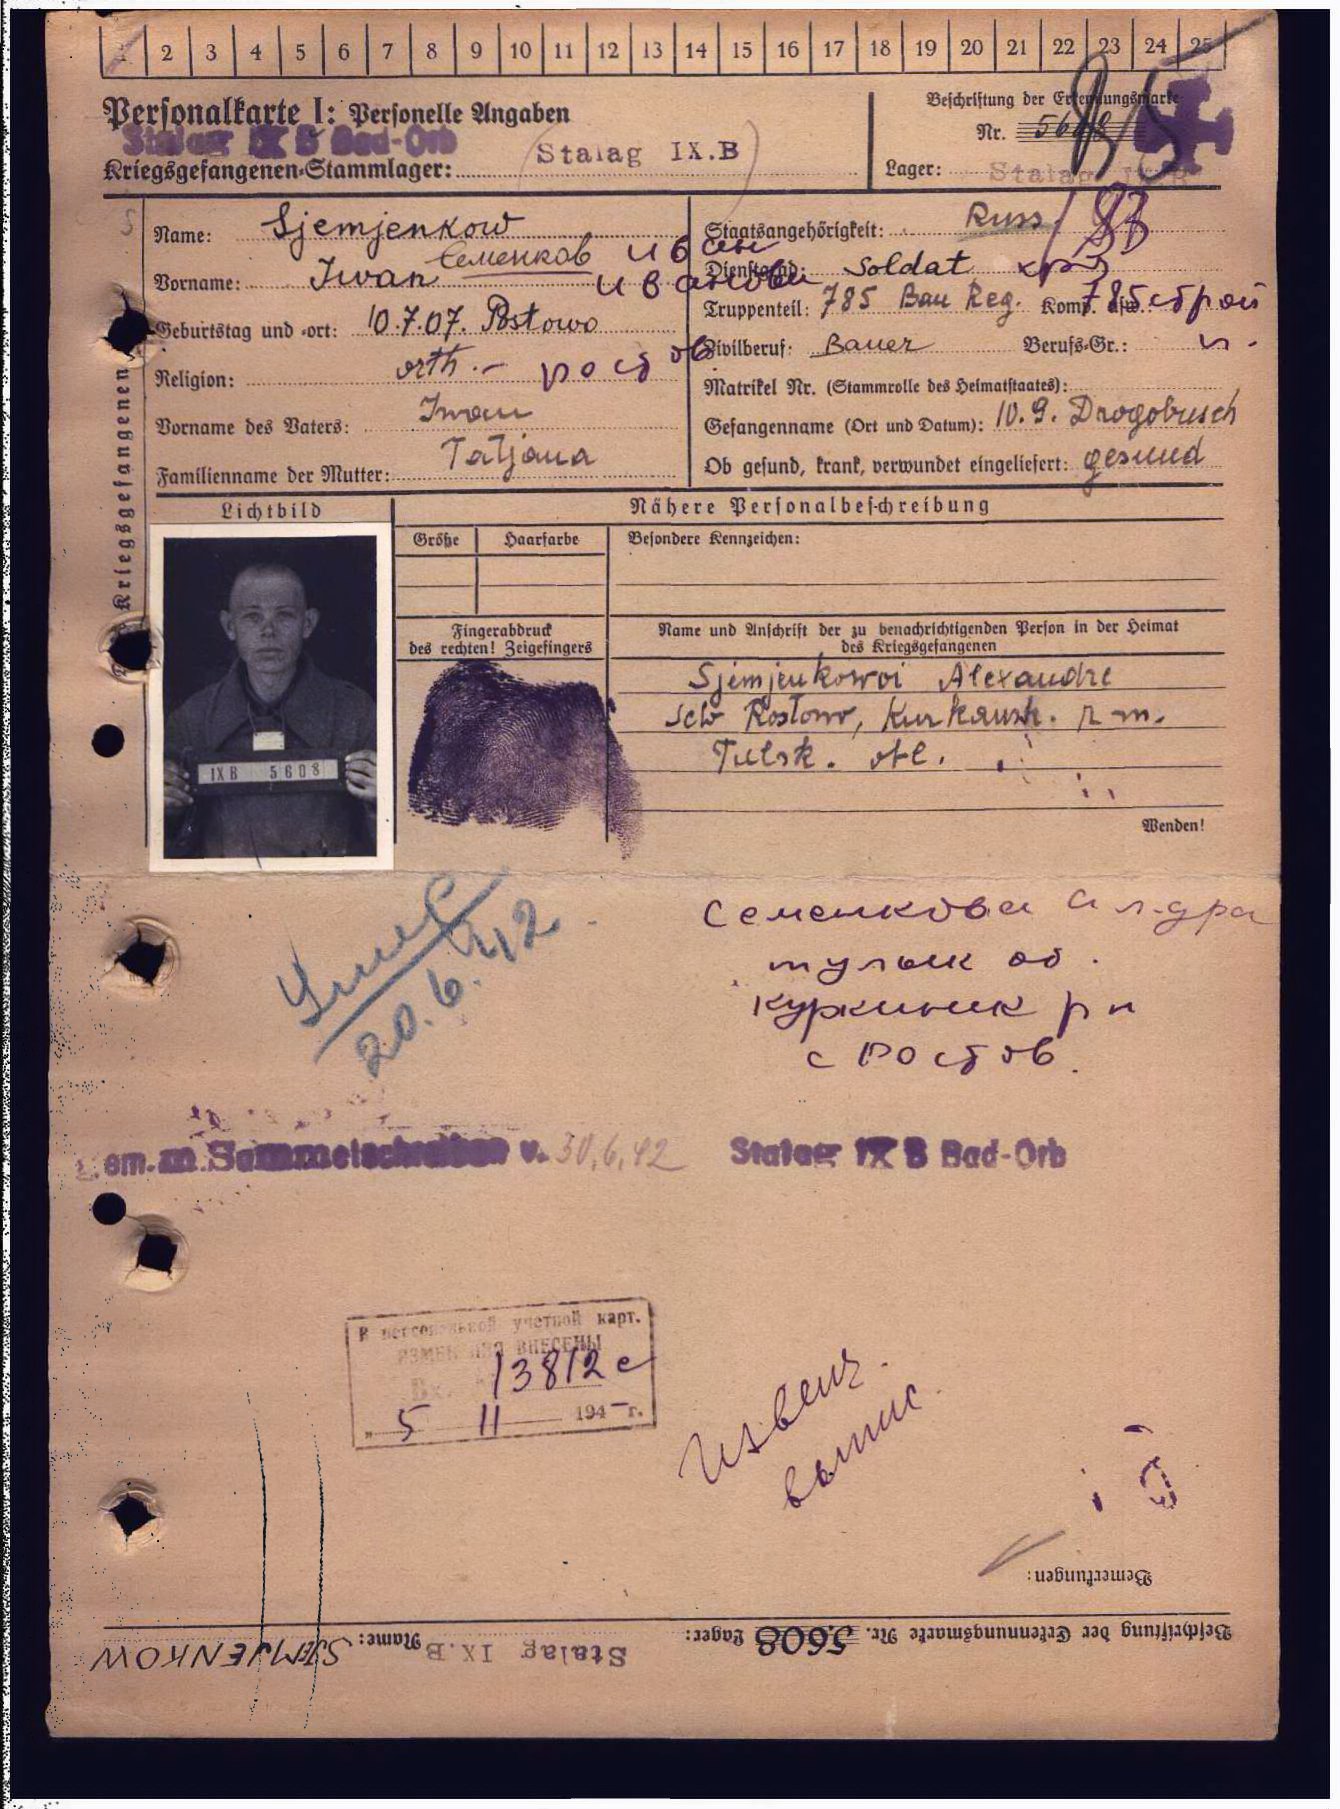 1 2 3 4 5 6 7 8 9 10 11 12 13 14 15 16 17 18 19 20 21 22 23 24 25
Personalkarte I: Personelle Angaben
Stalag IX B Bad-Orb
Kriegsgefangenen-Stammlager: Stalag IX.B
Beschriftung der Erkennungsmarke
Nr. 5608
Lager: Stalag IX.B
Name: Sjemjenkow
Семенков иван
Vorname: Iwan
иванови
Geburtstag und -ort: 10.7.07. Rostowo
Religion: orth.- ростов
Vorname des Vaters: Iwan
Familienname der Mutter: Tatjana
Staatsangehörigkeit: Russ
Dienstgrad: Soldat
Truppenteil: 785 Bau Reg. Komp. usw.: 785 строй
Zivilberuf: Bauer Berufs-Gr.: п.
Matrikel Nr. (Stammrolle des Heimatstaates):
Gefangenname (Ort und Datum): 10.9. Drogobusch
Ob gesund, krank, verwundet eingeliefert: gesund
Kriegsgefangenen
Lichtbild
IX B 5608
Nähere Personalbeschreibung
Größe Haarfarbe Besondere Kennzeichen:
Fingerabdruck
des rechten! Zeigefingers
Name und Anschrift der zu benachrichtigenden Person in der Heimat
des Kriegsgefangenen
Sjemjenkowoi Alexandre
sew Rostow, Kurkansk. r-m.
Tulsk. obl.
Wenden!
Умер
20.6.42
Семенкова Ал-дра
тульск об.
куркинск р н
с Ростов
Gem. m. Sammelschreiben v. 30.6.42 Stalag IX B Bad-Orb
В персональной учетной карт.
ИЗМЕНЕНИЯ ВНЕСЕНЫ
Вх. 13812с
„ 5 11 194 г.
Извещ.
выпис
Bemerkungen:
Beschriftung der Erkennungsmarke Nr. 5608 Lager: Stalag IX.B Name: SJEMJENKOW